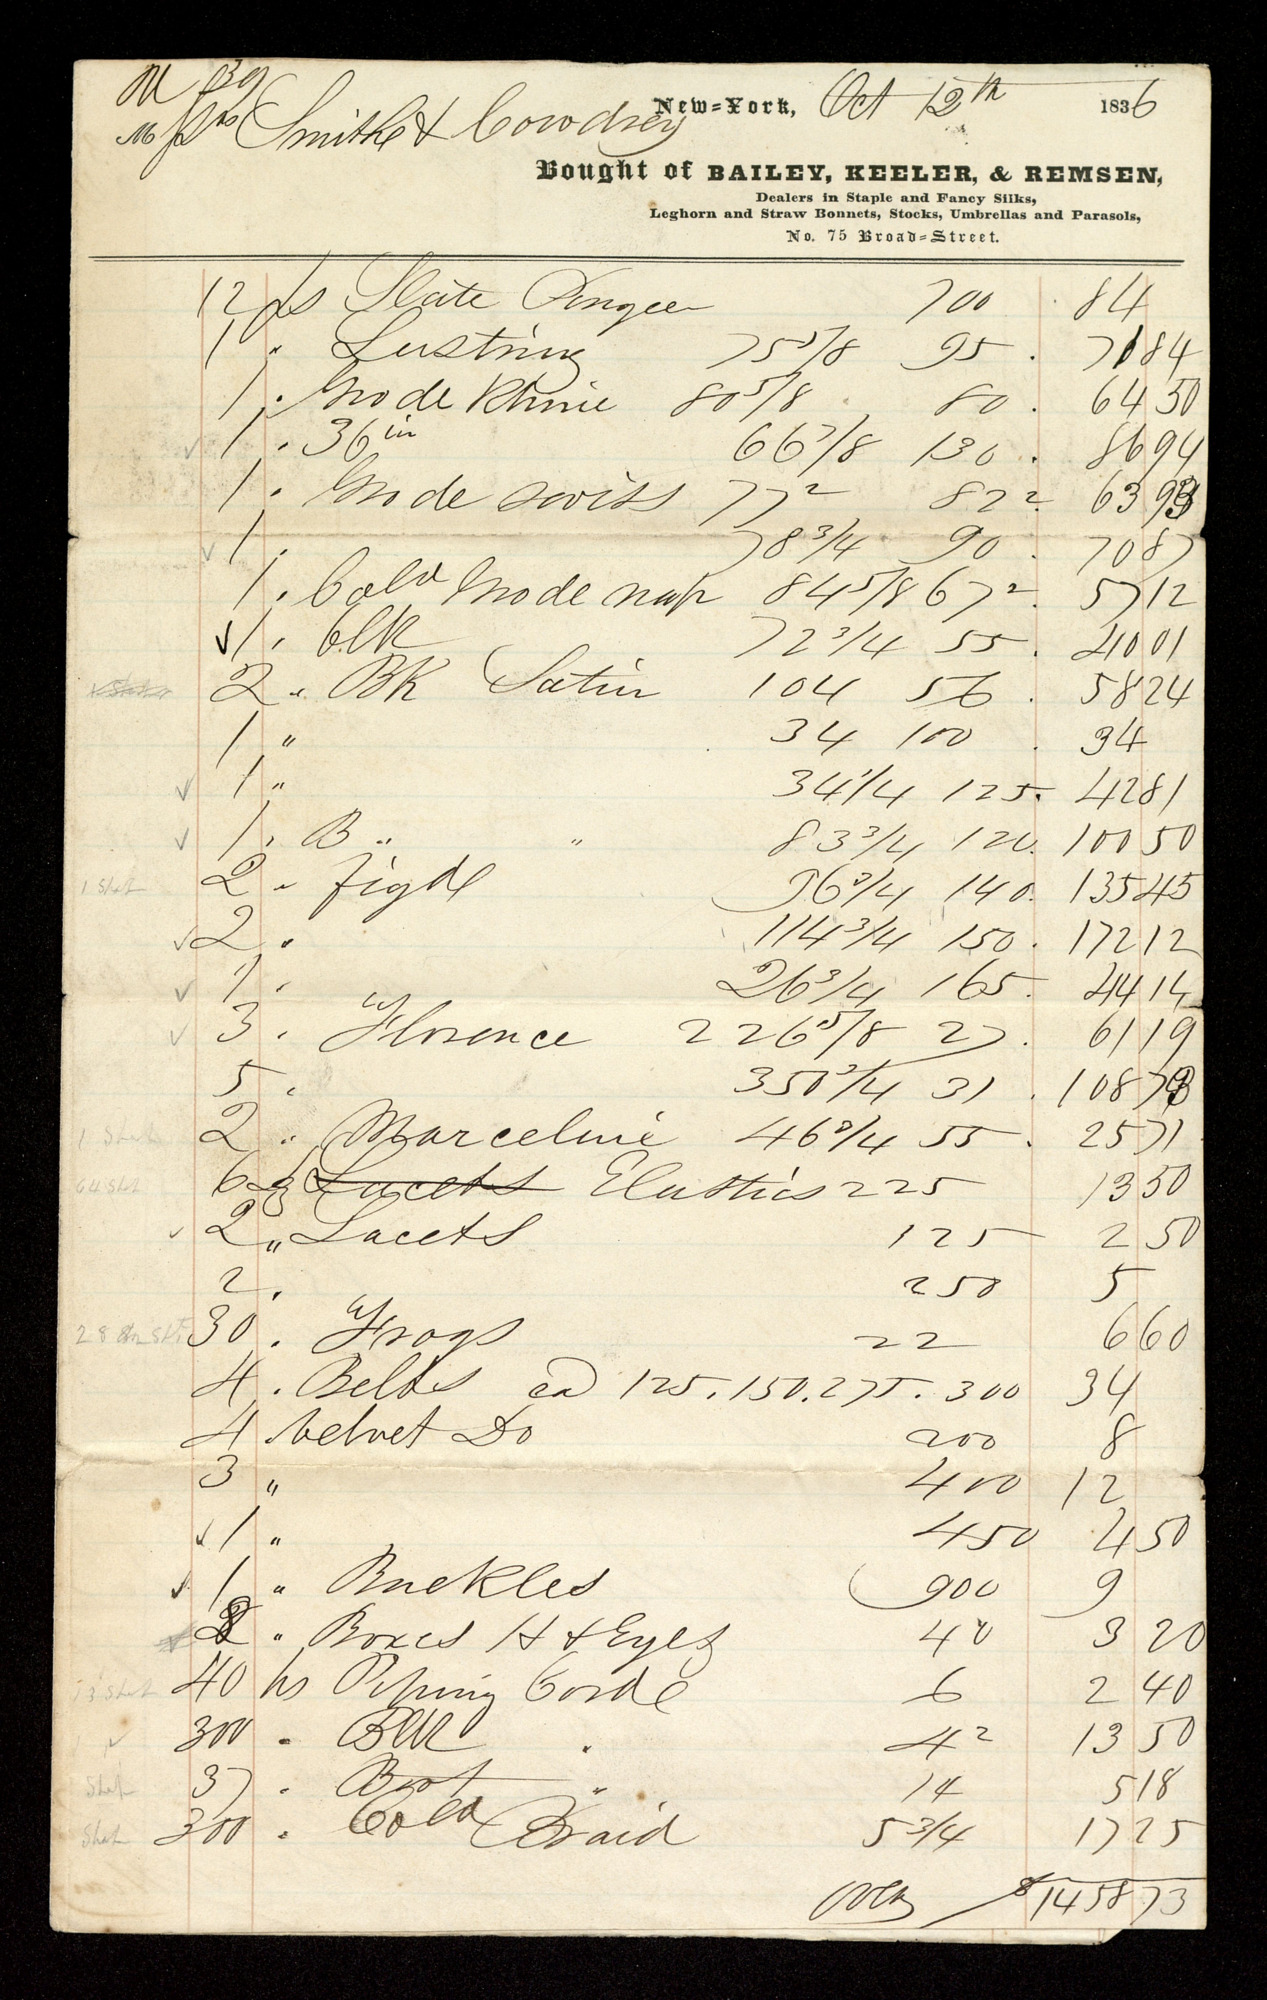 New-York, Oct 12th 1836
Smith & Cowdrey
Bought of BAILEY, KEELER, & REMSEN,
Dealers in Staple and Fancy Silks,
Leghorn and Straw Bonnets, Stocks, Umbrellas and Parasols,
No. 75 Broad-Street.
12 ps Slate 700 84
1 " Lustring 75 5/8 95 71 84
1 . Gro de Rhine 80 5/8 80 64 50
1 . 36 in 66 7/8 130 86 94
1 . Gro de Swiss 77 2 82 2 63 93
1 . 78 3/4 90 70 87
1 . Cold Gro de nap 84 5/8 67 2 57 12
1 . blk 72 3/4 55 40 01
2 " Bk Satin 104 56 58 24
1 " 34 100 34
1 " 34 1/4 125 42 81
1 . B " " 83 3/4 120 100 50
2 " figd 96 3/4 140 135 45
2 . 114 3/4 150 172 12
1 . 26 3/4 165 44 14
3 . Florence 226 5/8 27 61 19
5 . 350 3/4 31 108 73
2 . Marceline 46 3/4 55 25 71
6 Lacets Elastics 225 13 50
2 " Lacets 125 2 50
2 . 250 5
30 . Frogs 22 6 60
4 . Belts ea 125 . 150 . 275 . 300 34
4 . Velvet Do 200 8
3 " 400 12
1 " 450 4 50
1 " Buckles 900 9
8 " Boxes H & Eyes 40 3 20
40 Piping Cords 6 2 40
300 . Blk . 4 2 13 50
37 . " 14 5 18
300 . Cold Braid 5 3/4 17 25
over $1458 73